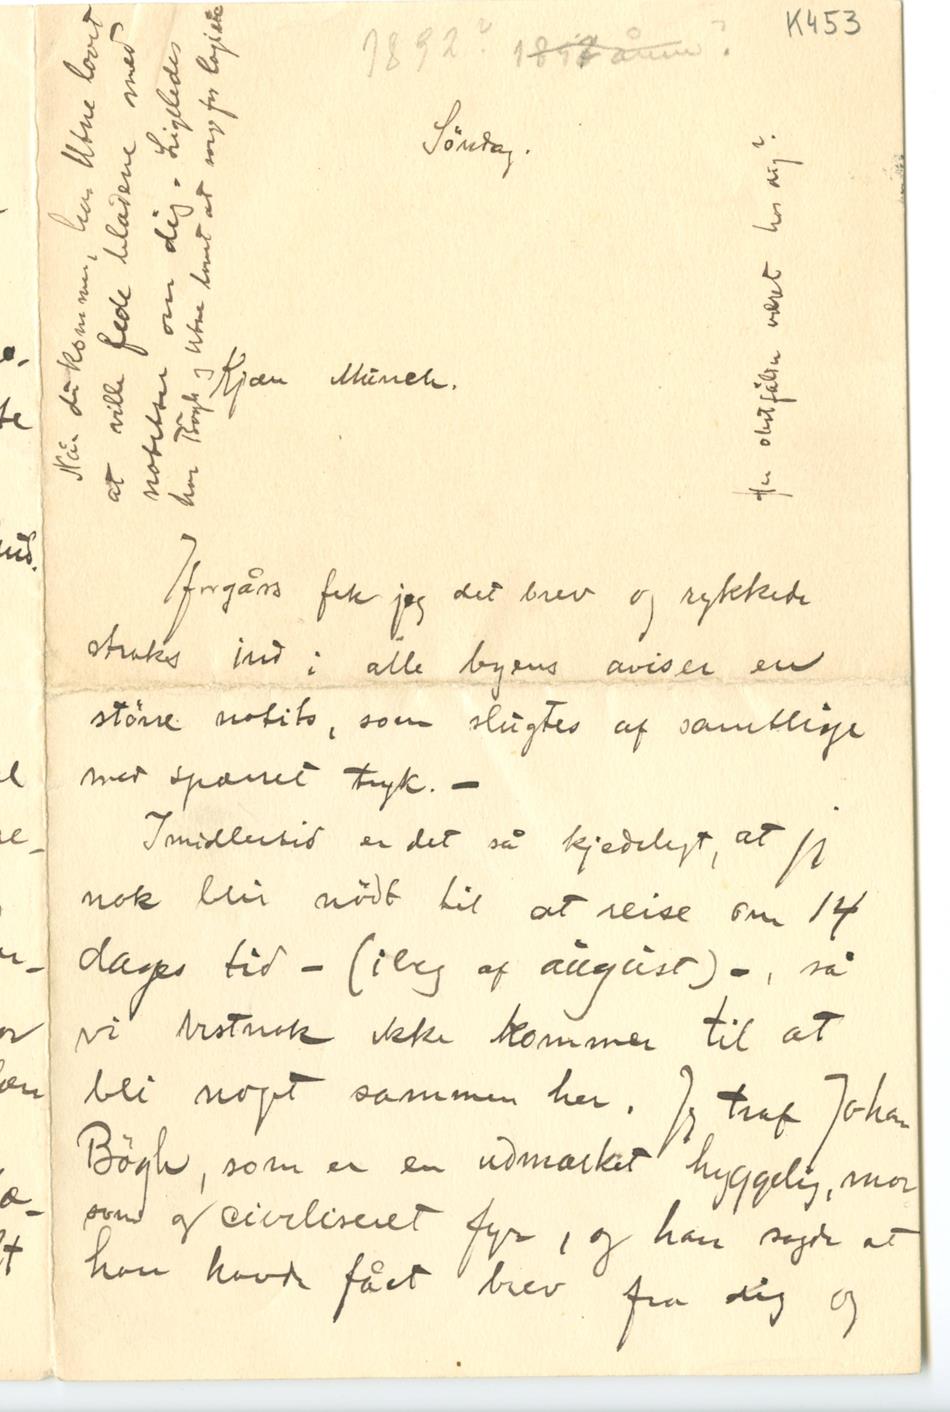 K453
1892?
Söndag.
Kjære Munch.
Iforgårs fik jeg dit brev og rykkede
straks ind i alle byens aviser en
större notits, som slugtes af samtlige
med spærret tryk. –
Imidlertid er det så kjedeligt, at jeg
nok blir nödt til at reise om 14
dages tid – (i beg af august) –, så
vi vistnok ikke kommer til at
bli noget sammen her. Jeg traf Johan
Bögh, som er en udmærket hyggelig, mor
som og civiliseret fyr, og han sagde at
han havde fået brev fra dig og
Når du kommer, har Utne lovet
at ville føde bladene med
notitser om dig. Ligeledes
har Bögh og Utne lovet at sørge for logis
hos dig?